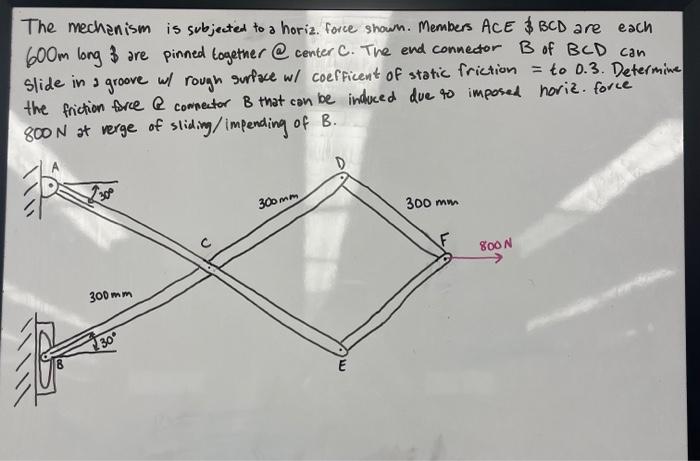 The mechanism is subjected to a horiz. force shown. Members ACE & BCD are each
600m long & are pinned together @ center C. The end connector B of BCD can
slide in a groove w/ rough surface w/ coefficent of static friction = to 0.3. Determine
the friction force @ connector B that can be induced due to imposed horiz. force
800 N at verge of sliding/impending of B.
A
30°
D
300 mm
300 mm
C
F
800 N
300 mm
30°
B
E